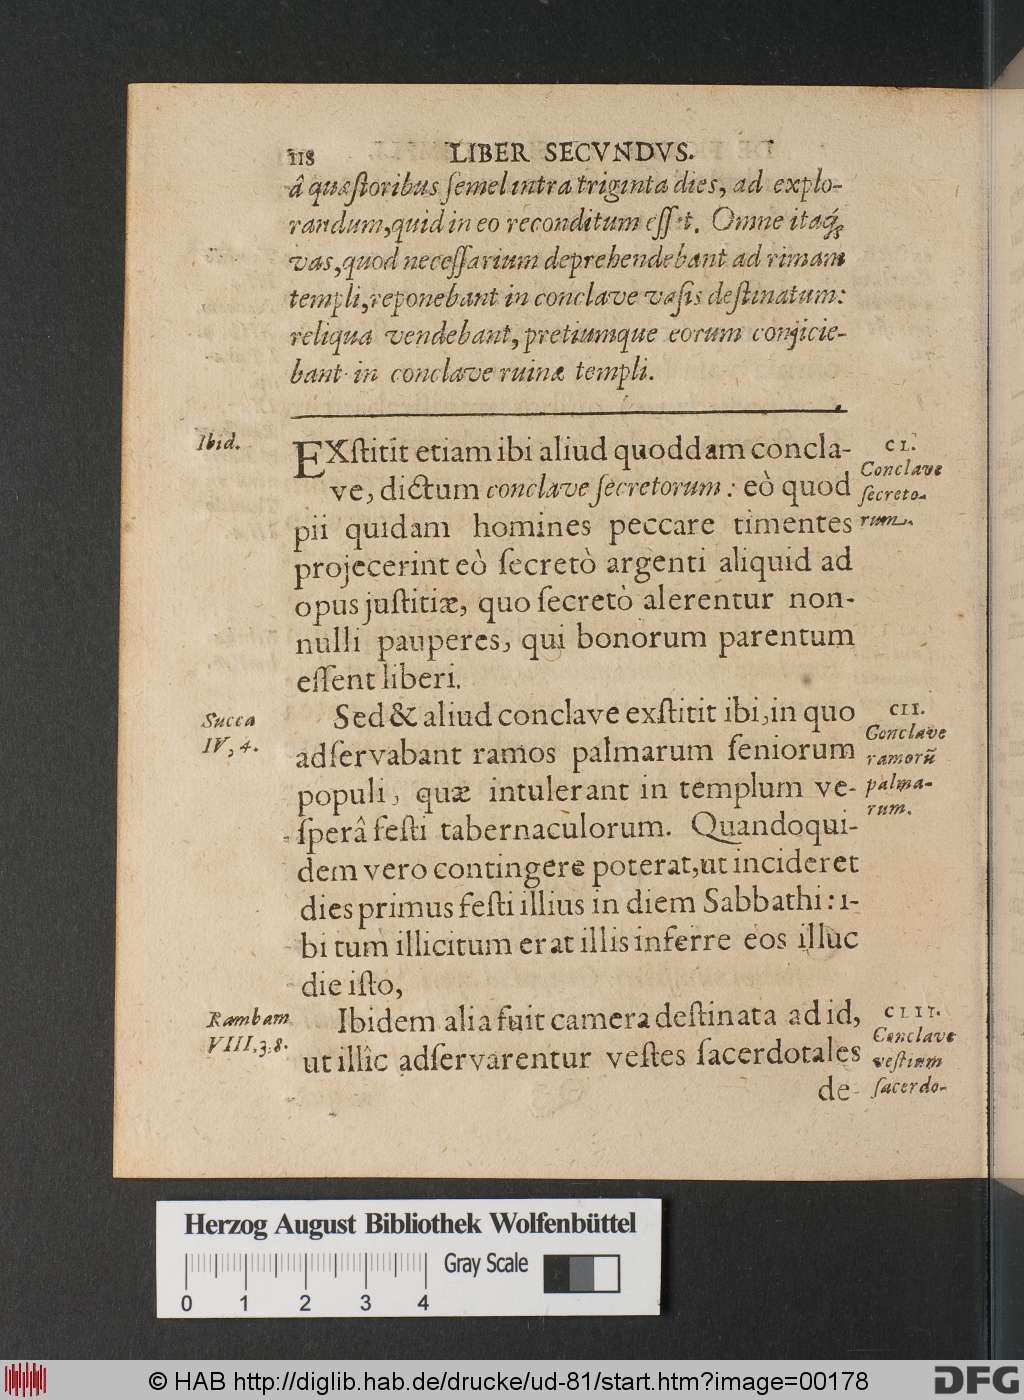 118 LIBER SECVNDVS.
â quæſtoribus ſemel intra triginta dies, ad explo-
randum, quid in eo reconditum eſſet. Omne itaq́;
vas, quod neceſſarium deprehendebant ad rimam
templi, reponebant in conclave vaſis deſtinatum:
reliqua vendebant, pretiumque eorum conjicie-
bant in conclave ruinæ templi.
Ibid.
EXſtitit etiam ibi aliud quoddam concla-
ve, dictum conclave ſecretorum: eò quod
pii quidam homines peccare timentes
projecerint eò ſecretò argenti aliquid ad
opus juſtitiæ, quo ſecretò alerentur non-
nulli pauperes, qui bonorum parentum
eſſent liberi.
CI.
Conclave
ſecreto-
rum.
Succa
IV, 4.
Sed & aliud conclave exſtitit ibi, in quo
adſervabant ramos palmarum ſeniorum
populi, quæ intulerant in templum ve-
ſperâ feſti tabernaculorum. Quandoqui-
dem vero contingere poterat, ut incideret
dies primus feſti illius in diem Sabbathi: i-
bi tum illicitum erat illis inferre eos illuc
die iſto,
CII.
Conclave
ramorũ
palma-
rum.
Rambam
VIII, 3. 8.
Ibidem alia fuit camera deſtinata ad id,
ut illîc adſervarentur veſtes ſacerdotales
de-
CLII.
Conclave
veſtium
ſacerdo-
Herzog August Bibliothek Wolfenbüttel
Gray Scale
0 1 2 3 4
© HAB http://diglib.hab.de/drucke/ud-81/start.htm?image=00178
DFG